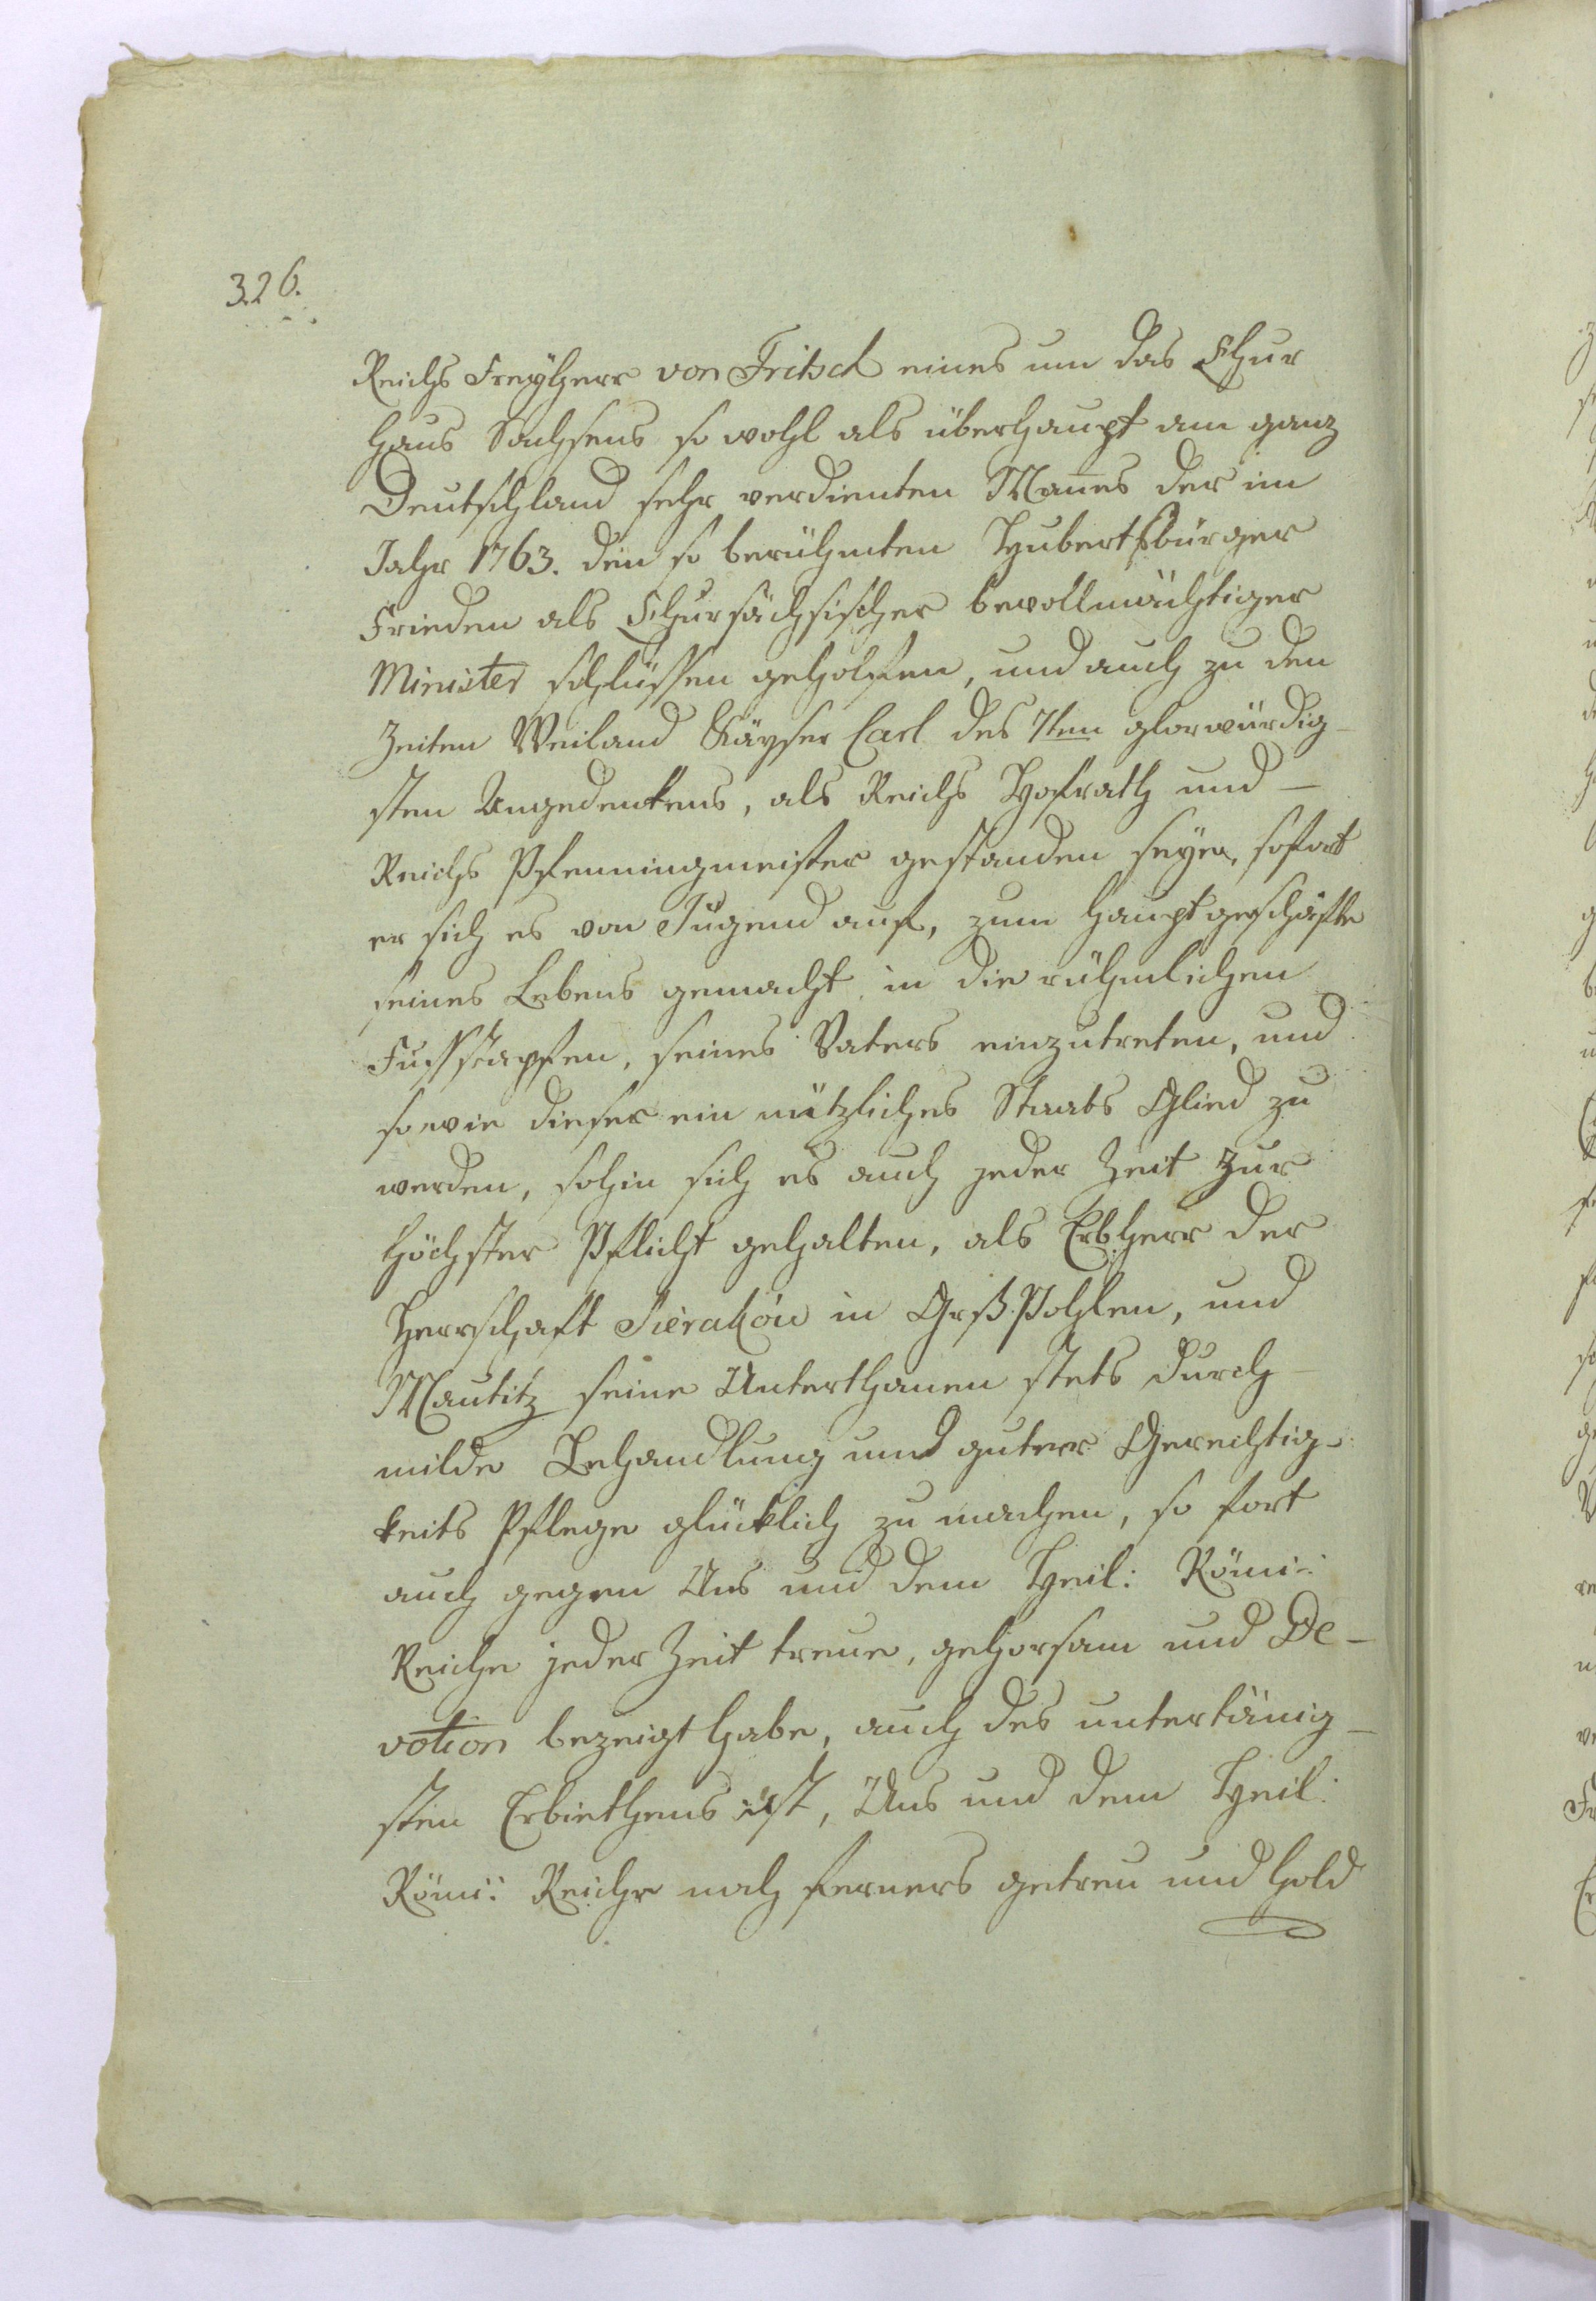 326.
Reichs Freyherr von Fritsch eines um das Chur
Haus Sachsens so wohl als überhaupt am ganz
Deutschland sehr verdienten Mañes der im
Jahr 1763. den so berühmten Hubertsburger
Frieden als Chursächsischer bevollmächtiger
Minister schlüssen geholfen, und auch zu den
Zeiten Weiland Kayser Carl des 7ten glorwürdig-
sten Angedenkens, als Reichs Hofrath und -
Reichs Pfenningmeister gestanden seyen, sofort
er sich es von Jugend auf, zum Hauptgeschäfte
seines Lebens gemacht in die rühmlichen
Fussstapfen, seines Vaters einzutreten, und
so wie dieser ein nützliches Staats Glied zu
werden, sohin sich es auch jeder Zeit zur
höchster Pflicht gehalten, als Erbherr der
Herrschaft Sieraków in Grß.Pohlen, und
Mautitz seine Unterthanen stets durch -
milde Behandlung und guter Gerechtig-
keits Pflege glücklich zu machen, so fort
auch gegen Uns und dem Heil: Röm:
Reiche jeder Zeit treue, gehorsam und De-
votion bezeigt habe, auch des untertänig-
sten Erbiethens ist, Uns und dem Heil:
Röm: Reiche noch ferners getreu und hold